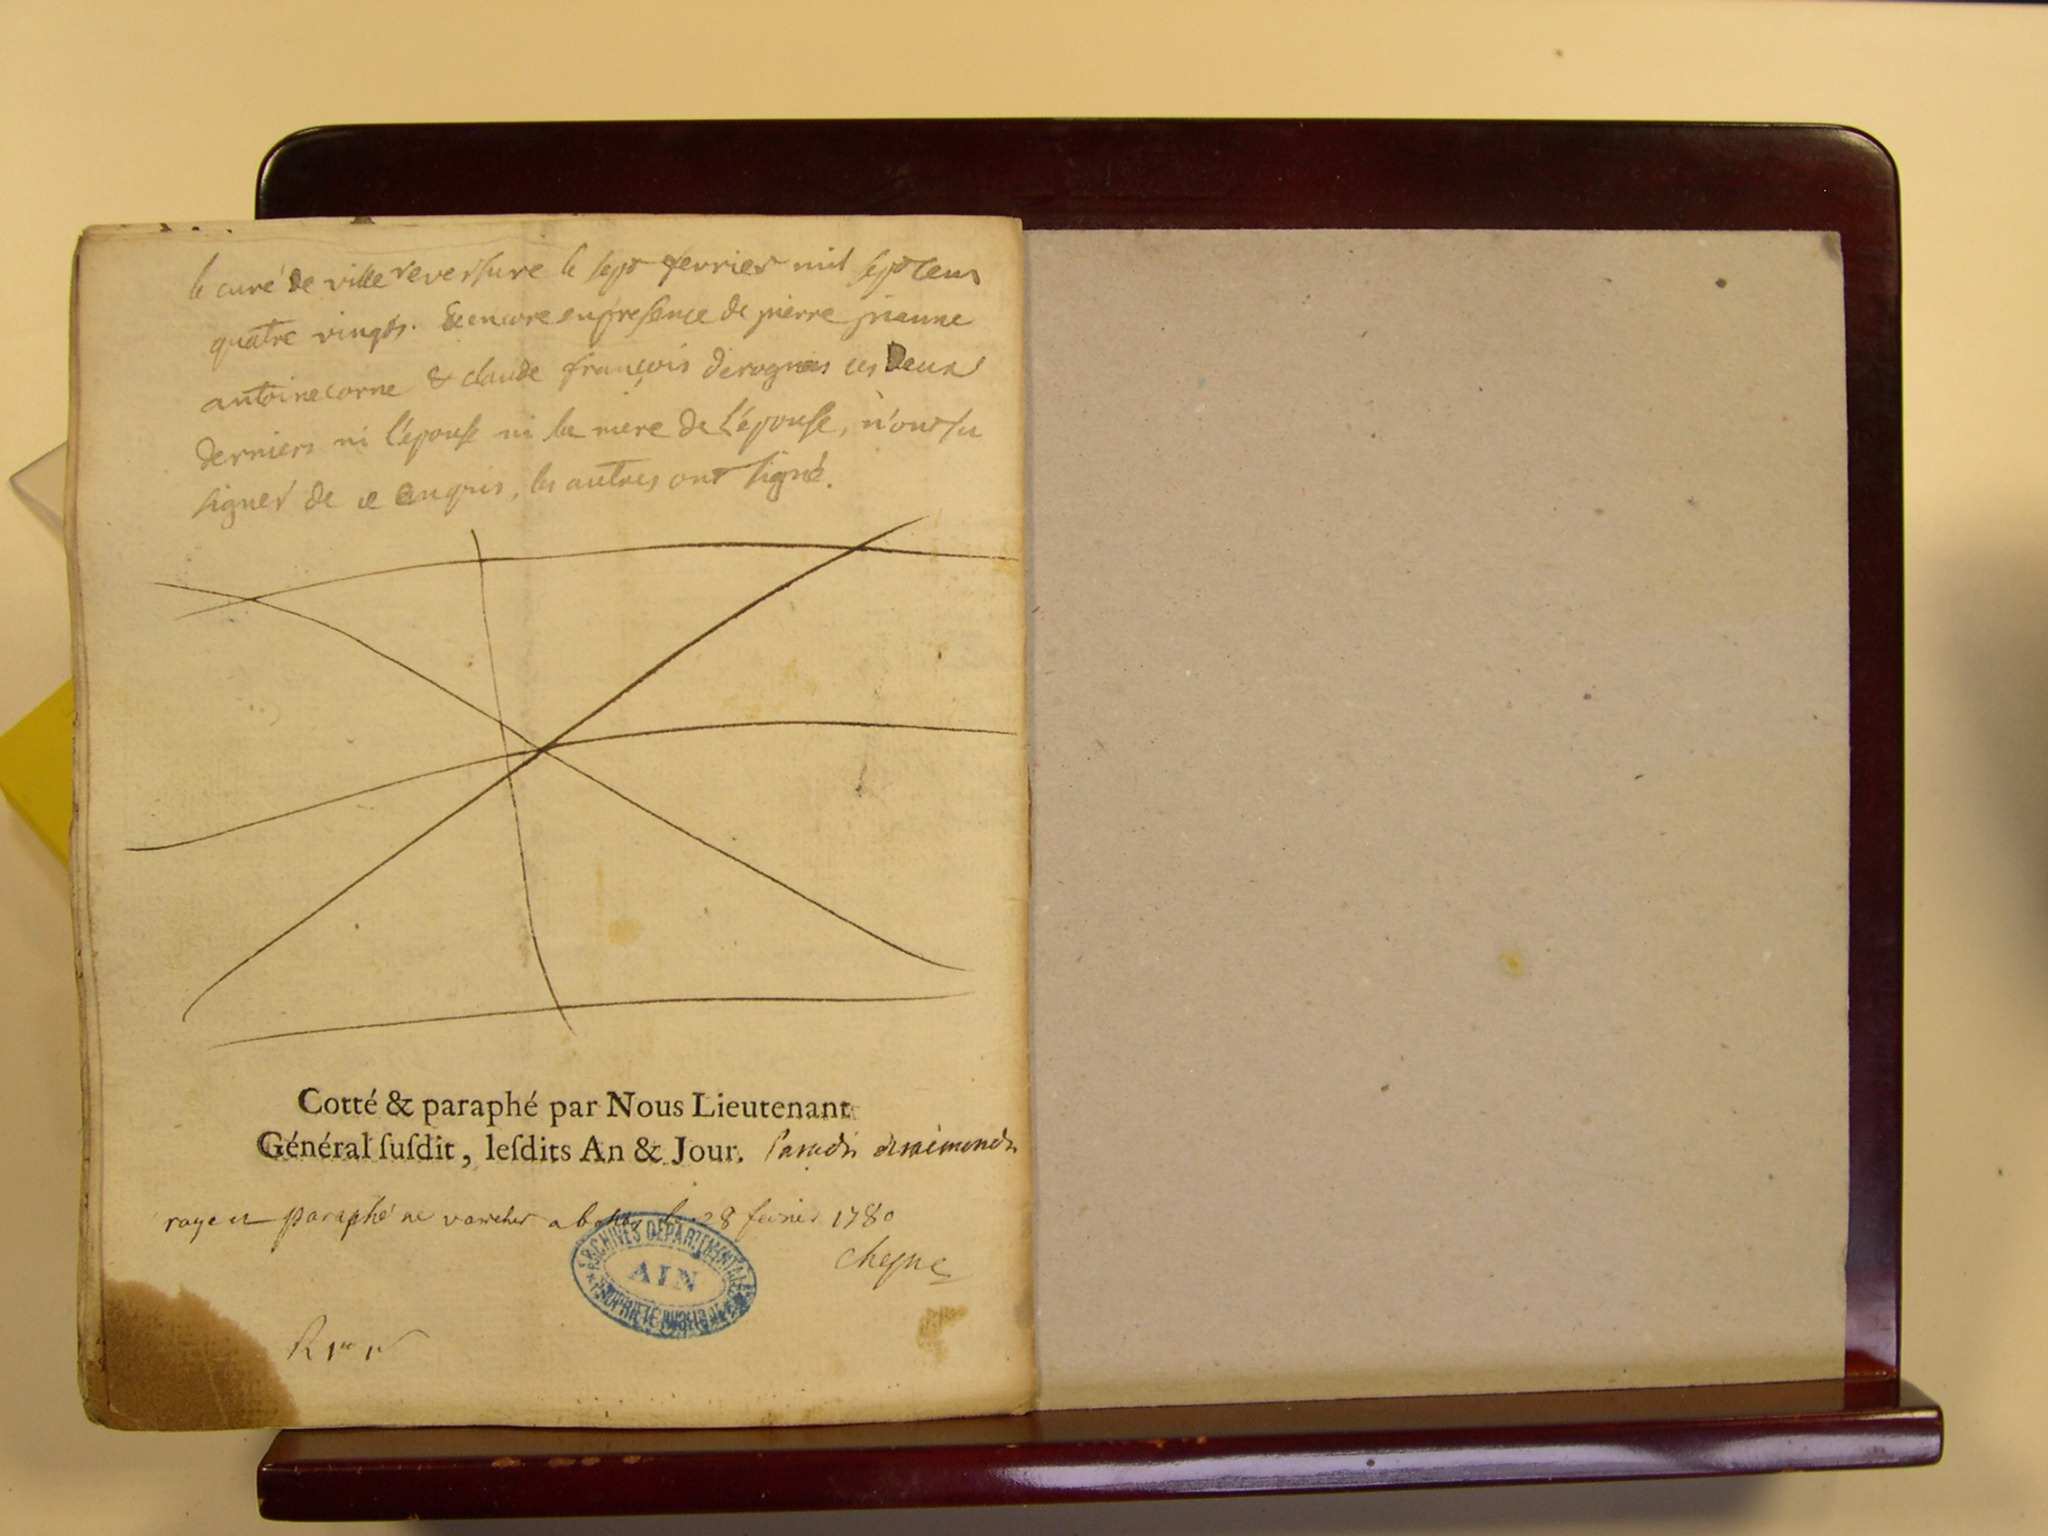 le curé de ville reversure le sept fevrier mil sept cent
quatre vingts. & encore en presence de pierre
antoine corne & claude françois derognas ces Deux
derniers ni l'épouse ni la mere de L'épouse, n'ont su
signer de ce enquis, les autres ont signé.
Cotté & paraphé par Nous Lieutenant
Général ſuſdit, leſdits An & Jour. Paradis deraimondis
raye et paraphé ne varietur a le 28 fevrier 1780
ARCHIVES DEPARTEMENTALES
AIN
PROPRIÉTÉ PUBLIQUE